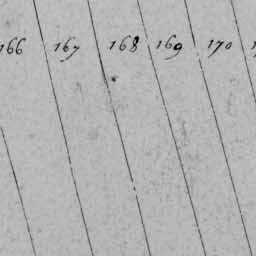 166 167 168 169 170